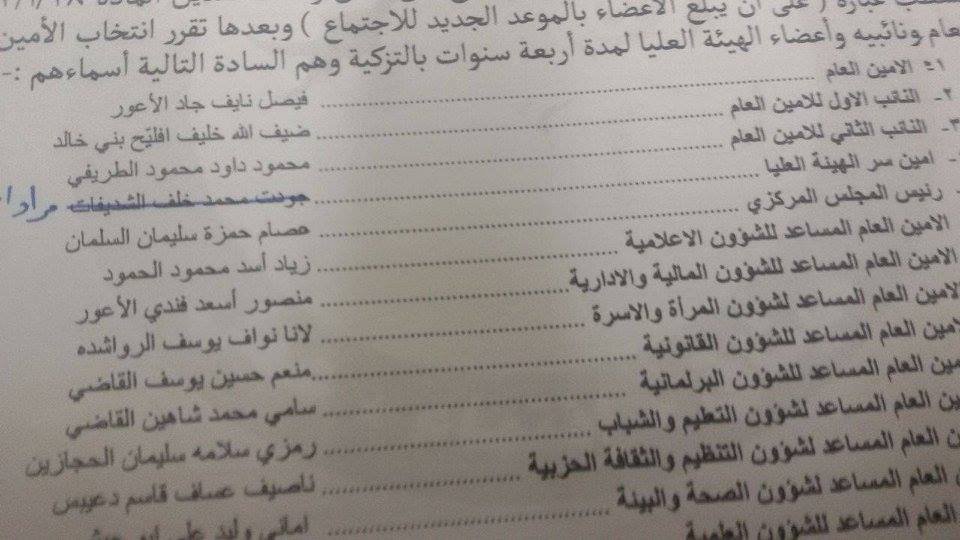 عبارة ( على ان يبلغ الاعضاء بالموعد الجديد للاجتماع ) وبعدها تقرر انتخاب الأمين
عام ونائبيه وأعضاء الهيئة العليا لمدة أربعة سنوات بالتزكية وهم السادة التالية أسماءهم :-
١- الامين العام ........ فيصل نايف جاد الأعور
٢- النائب الاول للامين العام ........ ضيف الله خليف افليّح بني خالد
٣- النائب الثاني للامين العام ........ محمود داود محمود الطريفي
امين سر الهيئة العليا ........ جودت محمد خلف الشديفات
رئيس المجلس المركزي ........ عصام حمزة سليمان السلمان
الامين العام المساعد للشؤون الاعلامية ........ زياد أسد محمود الحمود
الامين العام المساعد للشؤون المالية والادارية ........ منصور أسعد فندي الأعور
الامين العام المساعد لشؤون المرأة والاسرة ........ لانا نواف يوسف الرواشده
لامين العام المساعد للشؤون القانونية ........ منعم حسين يوسف القاضي
مين العام المساعد للشؤون البرلمانية ........ سامي محمد شاهين القاضي
ين العام المساعد لشؤون التعليم والشباب ........ رمزي سلامه سليمان الحجازين
ن العام المساعد لشؤون التنظيم والثقافة الحزبية ........ ناصيف عساف قاسم دعيبس
العام المساعد لشؤون الصحة والبيئة ........ اماني وليد علي ابو
العام المساعد للشؤون العلمية